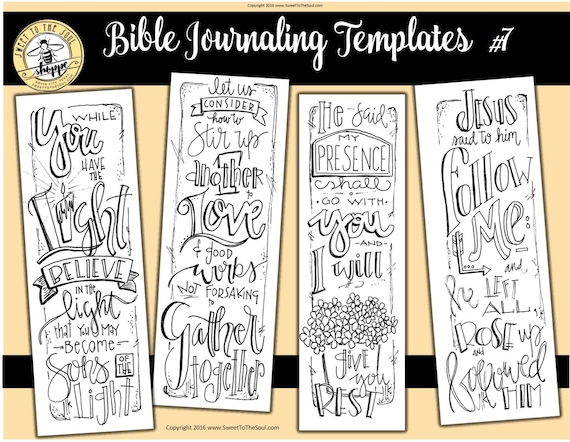 Copyright 2016 www.SweetToTheSoul.com
SWEET TO THE SOUL
shoppe
Bible Journaling Templates #7
WHILE
You
HAVE THE
Light
BELIEVE
IN THE
light
that you may
Become
Sons OF THE
Light
let us
CONSIDER
how to
Stir up
one
another
to
Love
& good
works
NOT FORSAKING
to
Gather
together
He said
MY
PRESENCE
shall
GO WITH
you
-AND-
I will
give
you
REST
Jesus
said to him
Follow
ME-
and
he LEFT
ALL,
ROSE up
AND
followed
HIM
Copyright 2016 www.SweetToTheSoul.com